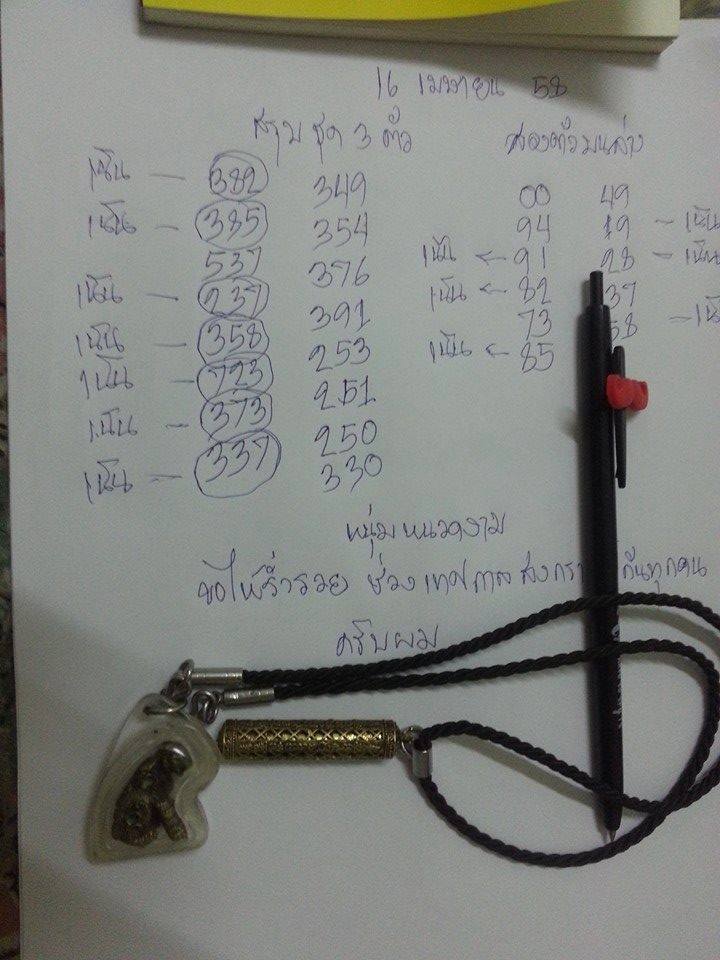 16 เมษายน 58
สรุป ชุด 3 ตัว สองตัวบนล่าง
เน้น – 382 349 00 49
เน้น – 385 354 94 19 – เน้น
537 376 เน้น ← 91 28 – เน้น
เน้น – 237 391 เน้น ← 82 37
เน้น – 358 253 73 58 – เน้
เน้น – 723 251 เน้น ← 85
เน้น – 373 250
เน้น – 337 330
หนุ่มหนวดงาม
ขอให้ร่ำรวย ช่วง เทศกาล สงกรา กันทุกคน
ครับผม